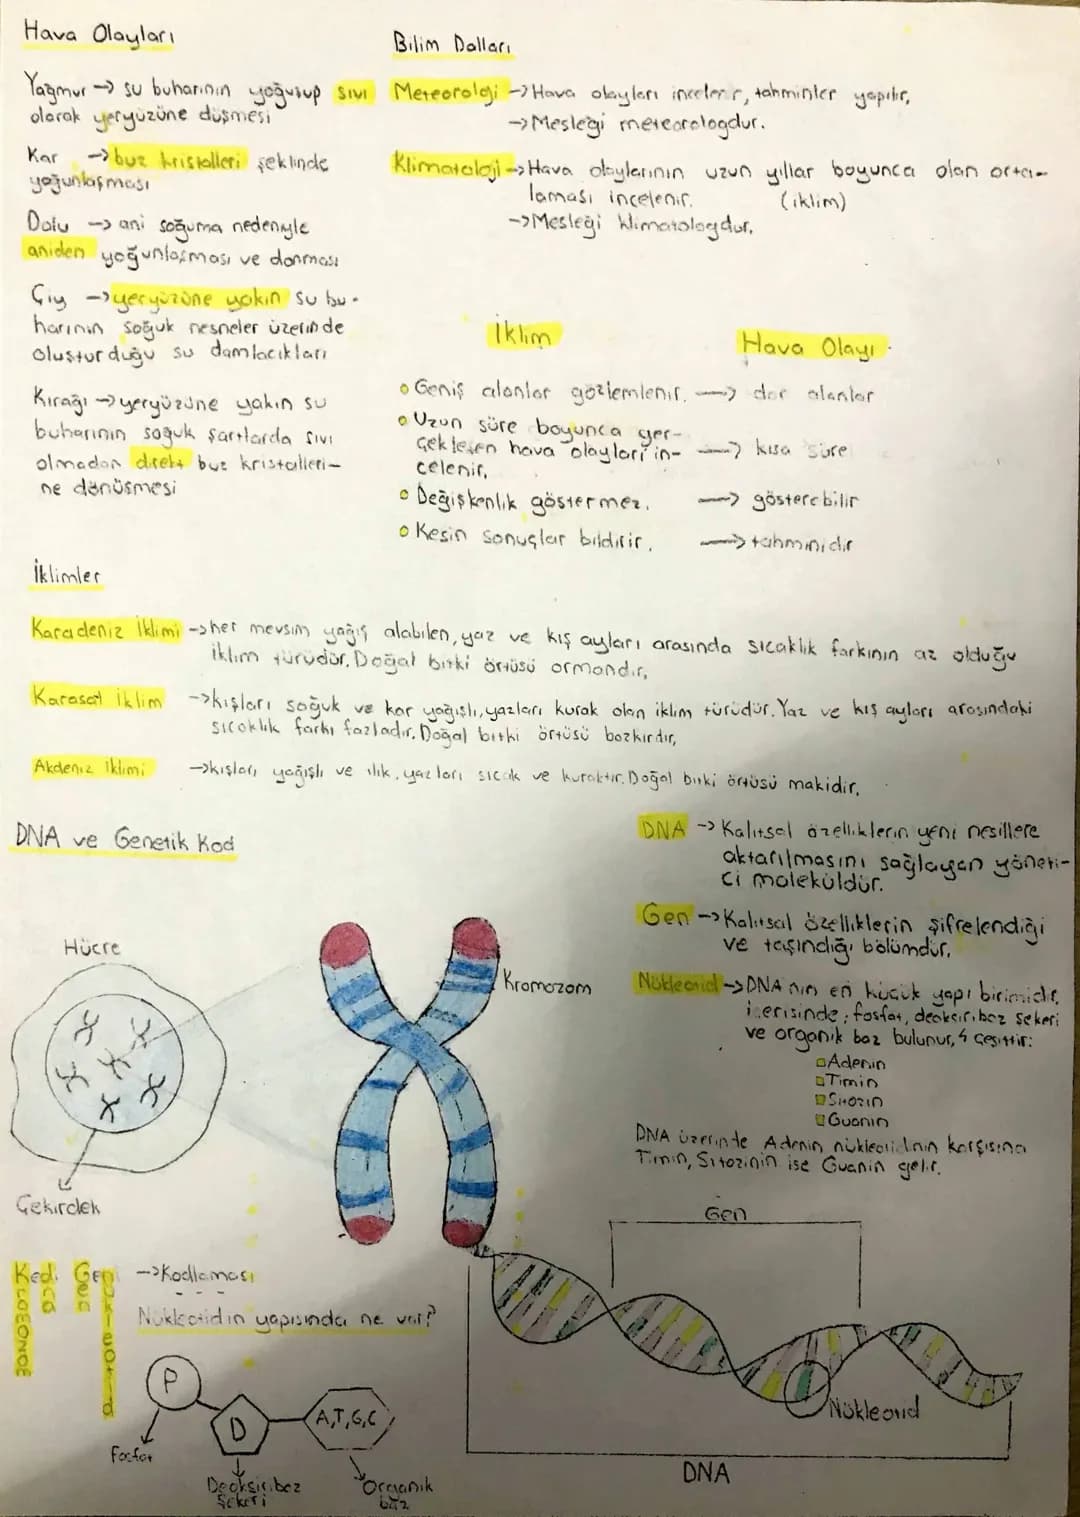 Hava Olayları
Yağmur → su buharının yoğuşup sıvı
olarak yeryüzüne düşmesi
Kar → buz kristalleri şeklinde
yoğunlaşması
Dolu → ani soğuma nedeniyle
aniden yoğunlaşması ve donması
Çiy → yeryüzüne yakın su bu-
harının soğuk nesneler üzerinde
oluşturduğu su damlacıkları
Kırağı → yeryüzüne yakın su
buharının soğuk şartlarda sıvı
olmadan direkt buz kristalleri-
ne dönüşmesi
Bilim Dalları
Meteoroloji → Hava olayları incelenir, tahminler yapılır.
→ Mesleği meteorologdur.
Klimatoloji → Hava olaylarının uzun yıllar boyunca olan orta-
laması incelenir. (iklim)
→ Mesleği klimatologdur.
İklim Hava Olayı
Geniş alanlar gözlemlenir. → dar alanlar
Uzun süre boyunca ger-
çekleşen hava olayları in- → kısa süre
celenir.
Değişkenlik göstermez. → gösterebilir
Kesin sonuçlar bildirir. → tahminidir
İklimler
Karadeniz İklimi → her mevsim yağış alabilen, yaz ve kış ayları arasında sıcaklık farkının az olduğu
iklim türüdür. Doğal bitki örtüsü ormandır.
Karasal İklim → kışları soğuk ve kar yağışlı, yazları kurak olan iklim türüdür. Yaz ve kış ayları arasındaki
sıcaklık farkı fazladır. Doğal bitki örtüsü bozkırdır.
Akdeniz İklimi → kışları yağışlı ve ılık, yazları sıcak ve kuraktır. Doğal bitki örtüsü makidir.
DNA ve Genetik Kod
Hücre
Çekirdek
Kromozom
DNA → Kalıtsal özelliklerin yeni nesillere
aktarılmasını sağlayan yöneti-
ci moleküldür.
Gen → Kalıtsal özelliklerin şifrelendiği
ve taşındığı bölümdür.
Nükleotid → DNA'nın en küçük yapı birimidir.
içerisinde; fosfat, deoksiriboz şekeri
ve organik baz bulunur, 4 çeşittir:
Adenin
Timin
Sitozin
Guanin
DNA üzerinde Adenin nükleotidinin karşısına
Timin, Sitozinin ise Guanin gelir.
Kedi Gen → Kodlaması
Kromozom
Dna
Gen
Nükleotid
Nükleotidin yapısında ne var?
P
D
A,T,G,C
Fosfat
Deoksiriboz
Şekeri
Organik
baz
Gen
Nükleotid
DNA